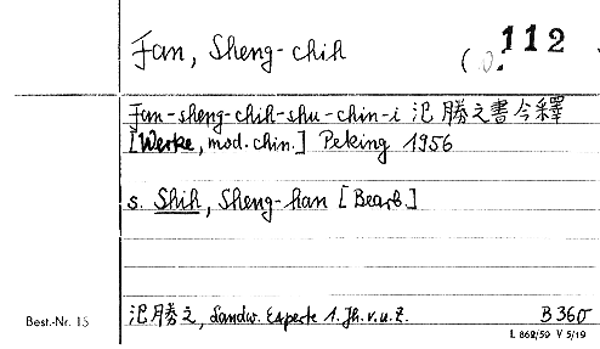 Fan, Sheng-chih
112
Fan-sheng-chih-shu-chin-i 氾勝之書今釋
[Werke, mod. chin.] Peking 1956
s. Shih, Sheng-han [Bearb.]
氾勝之, Landw. Experte 1. Jh. v. u. Z.
B 360
Best.-Nr. 15
L 868/59 V 5/19